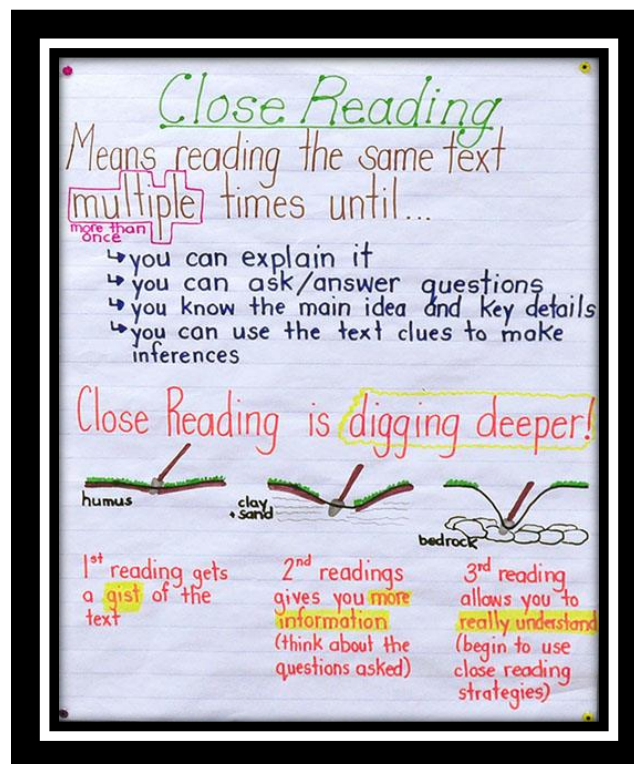 Close Reading
Means reading the same text
multiple times until...
more than
once
↳ you can explain it
↳ you can ask/answer questions
↳ you know the main idea and key details
↳ you can use the text clues to make
inferences
Close Reading is digging deeper!
humus
clay
+ sand
bedrock
1st reading gets
a gist of the
text
2nd readings
gives you more
information
(think about the
questions asked)
3rd reading
allows you to
really understand
(begin to use
close reading
strategies)